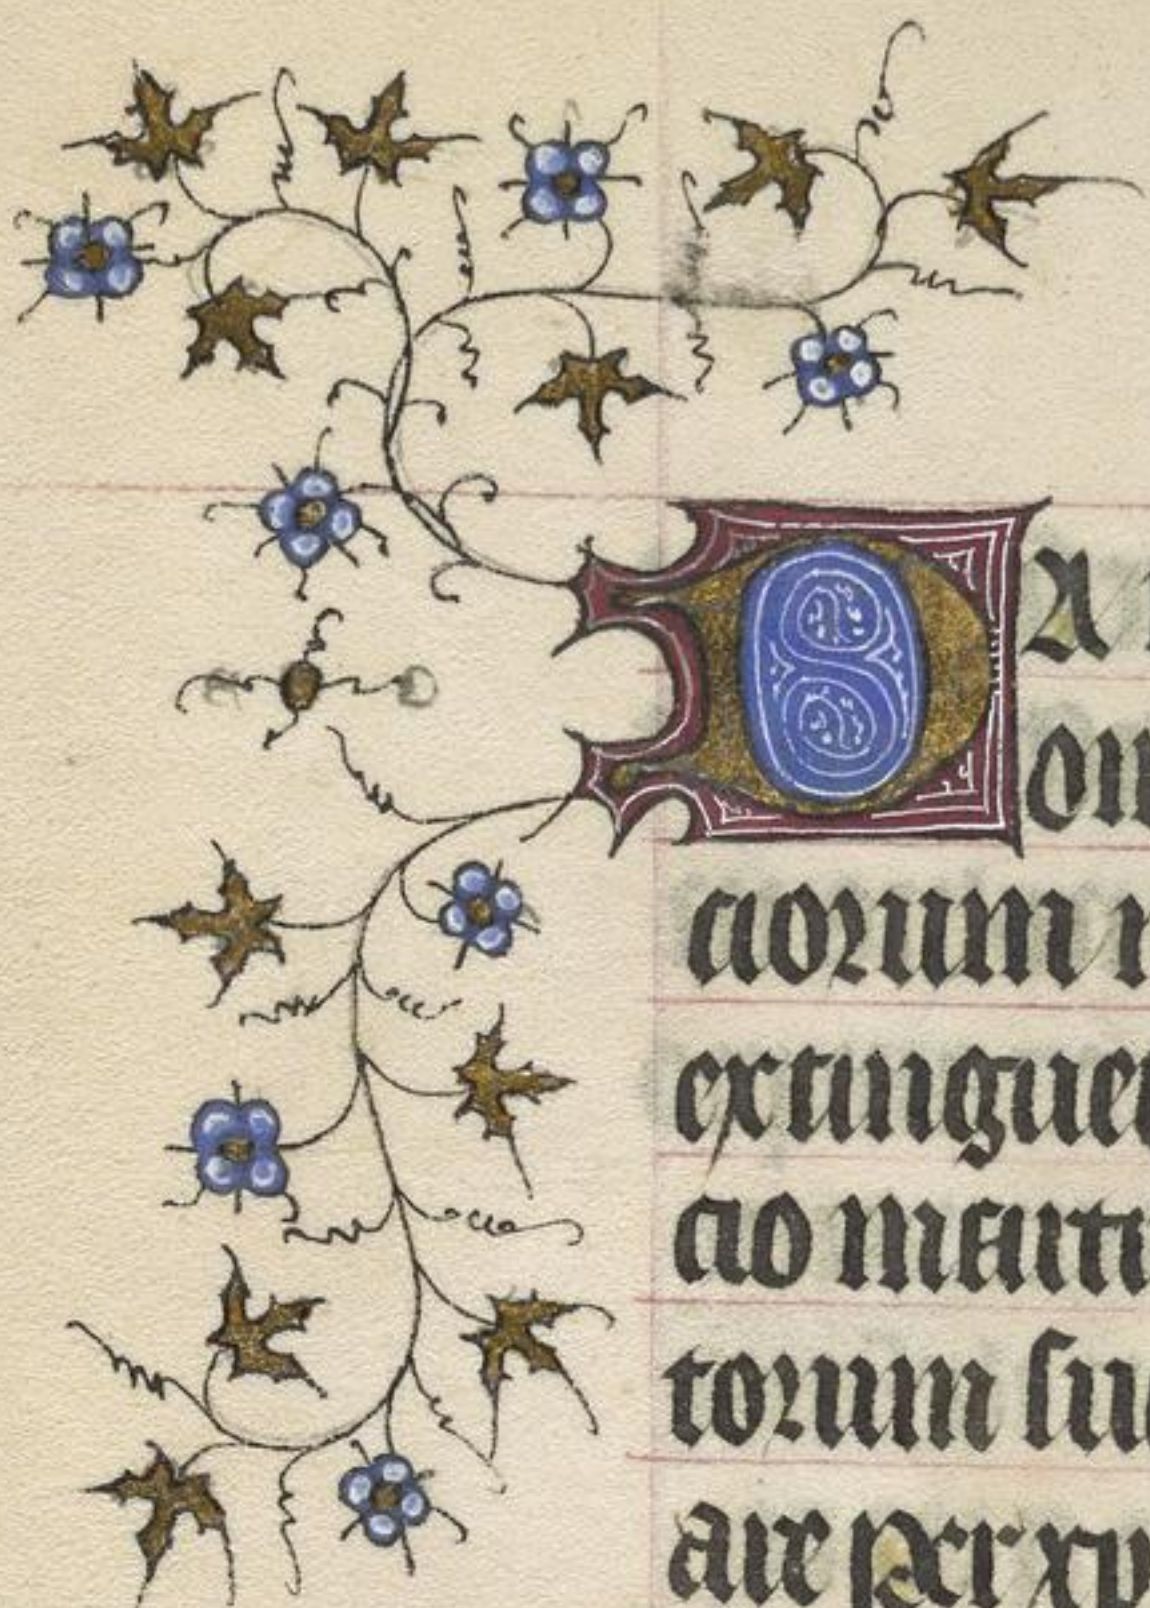 Da
om
ciorum n
extinguer
cio marti
torum suo
are per xp